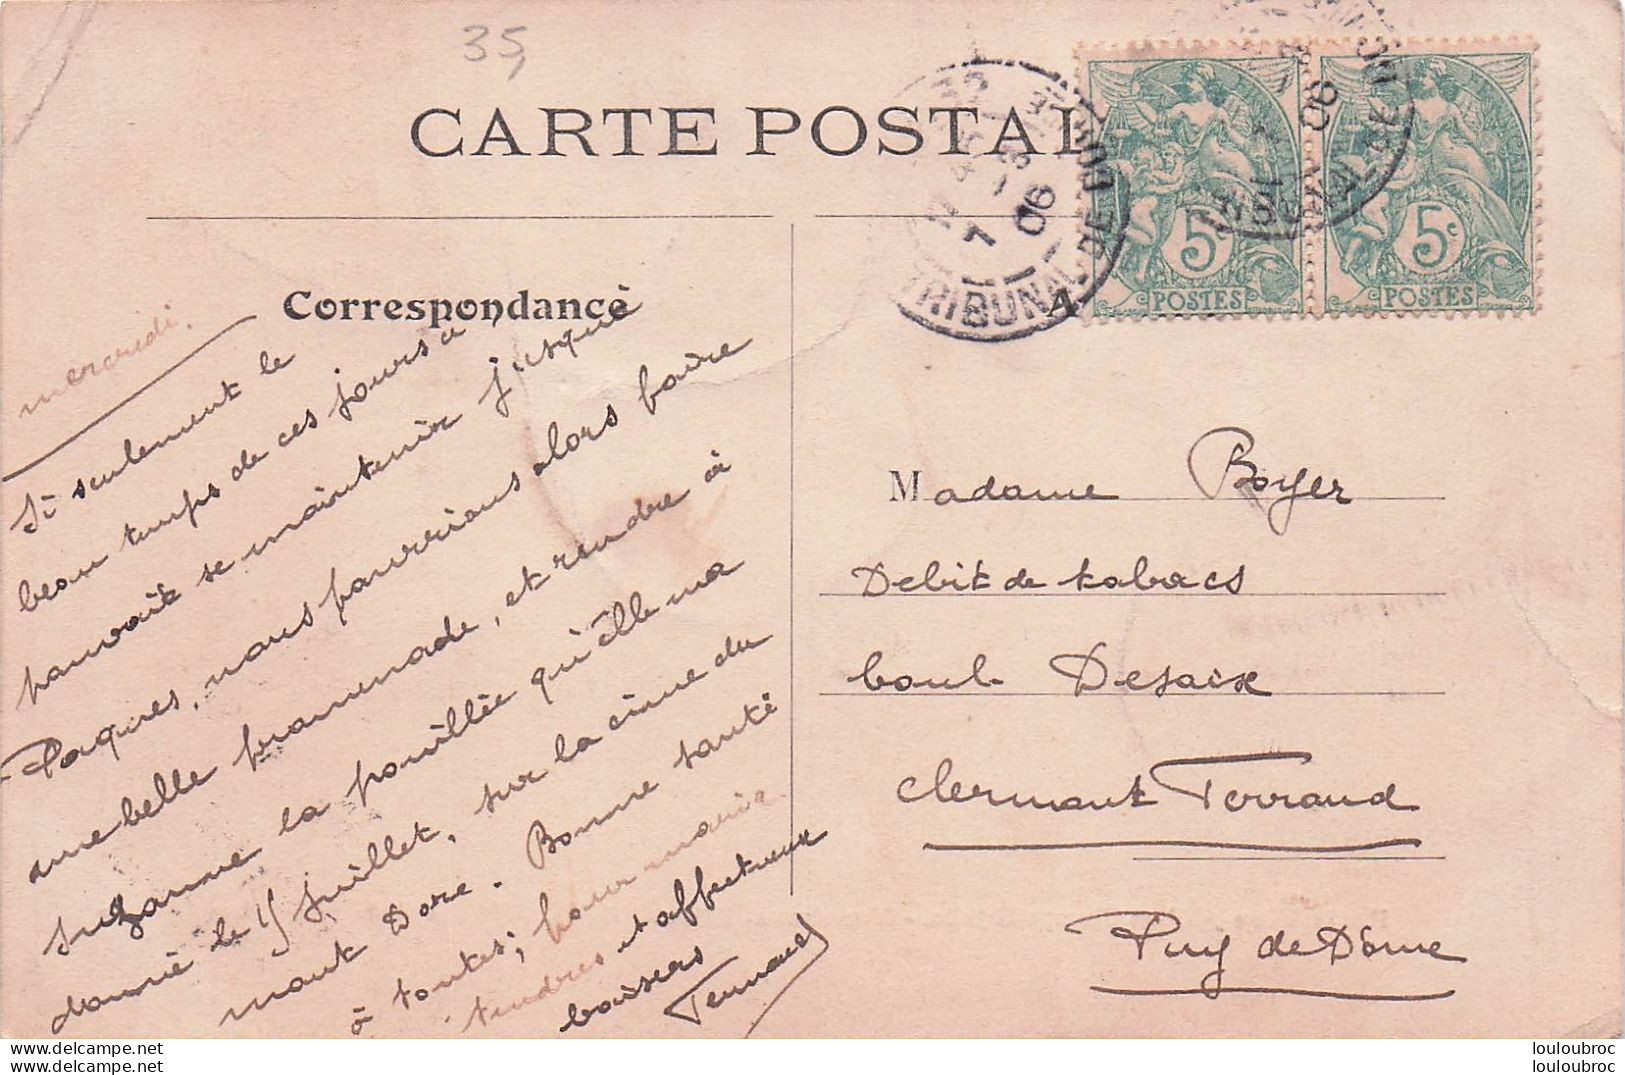 35
CARTE POSTALE
TRIBUNAL DE
7 - 3
06
5c
POSTES
5c
POSTES
Correspondance
A
mercredi.
Si seulement le
beau temps de ces jours-ci
pouvait se maintenir jusqu'à
Paques, nous pourrions alors faire
une belle promenade, et rendre à
Suzanne la pouillée qu'elle m'a
donné le 15 Juillet, sur la cime du
mont Dore. Bonne santé
à toutes; pour marie
tendres et affectueux
baisers
Fernand
Madame Boyer
Debit de tabacs
boul. Desaix
Clermont Ferrand
Puy de Dôme
www.delcampe.net
www.delcampe.net
louloubroc
louloubroc